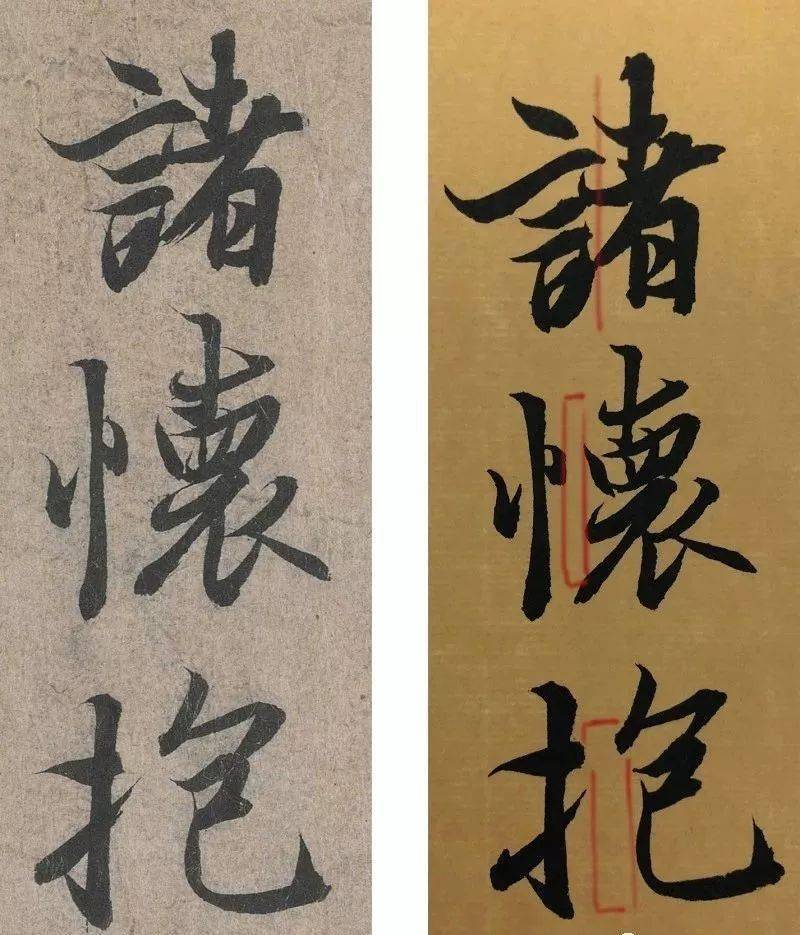 諸懷抱
諸懷抱